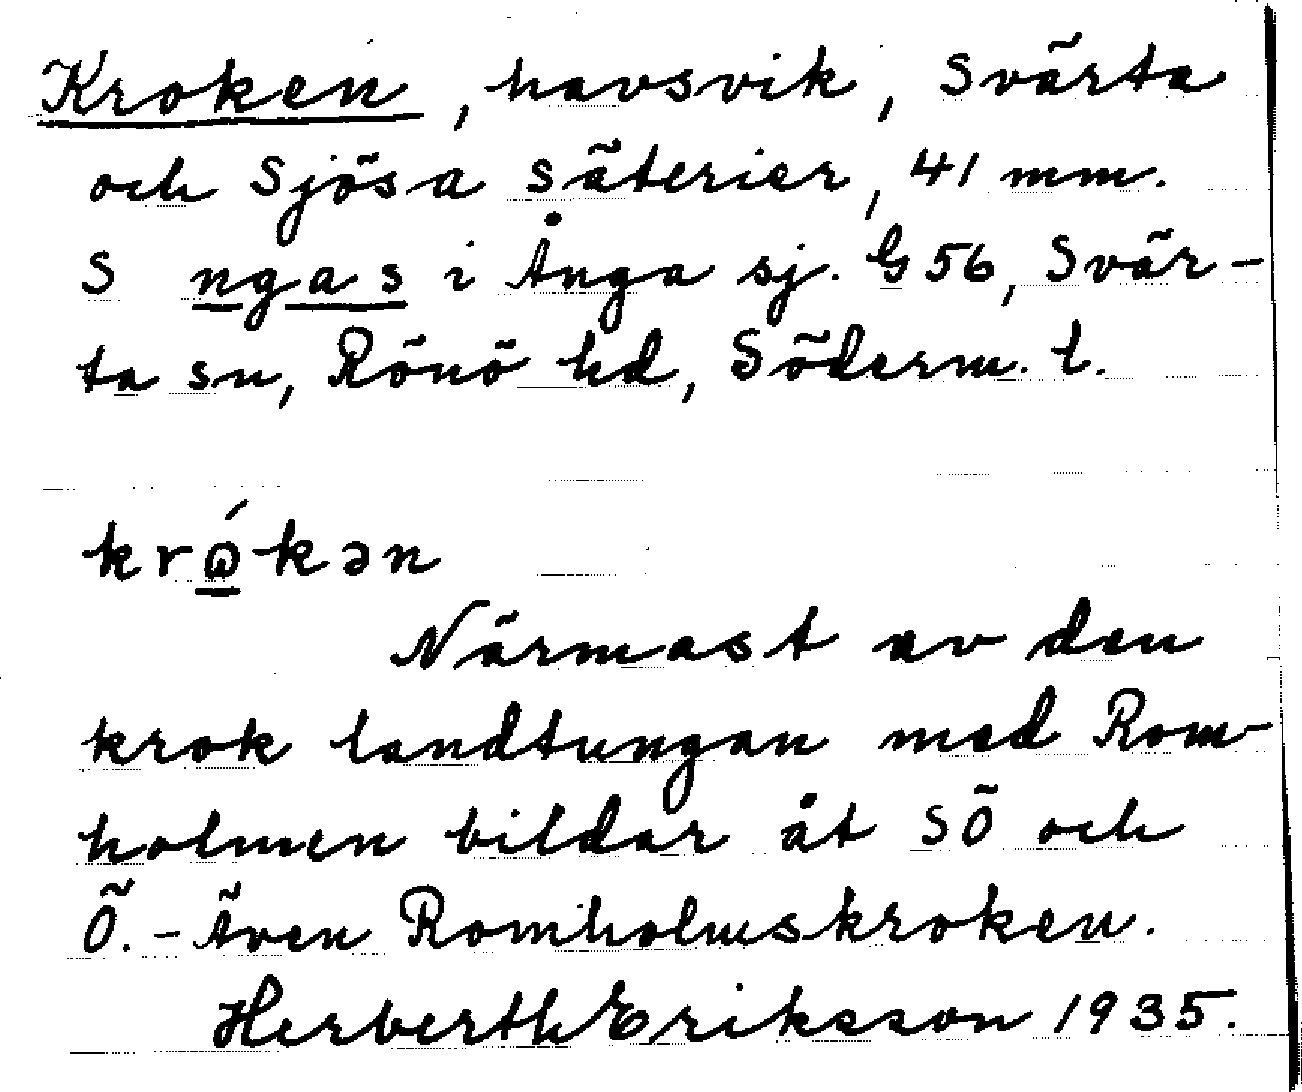 Kroken, havsvik, Svärta
och Sjösa säterier, 41 mm.
S ngas i Ånga sj. G 56, Svär-
ta sn, Rönö hd, Söderm. l.
krώkən
Närmast av den
krok landtungan med Rom-
holmen bildar åt SÖ och
Ö. - Även Romholmskroken.
Herberth Eriksson 1935.